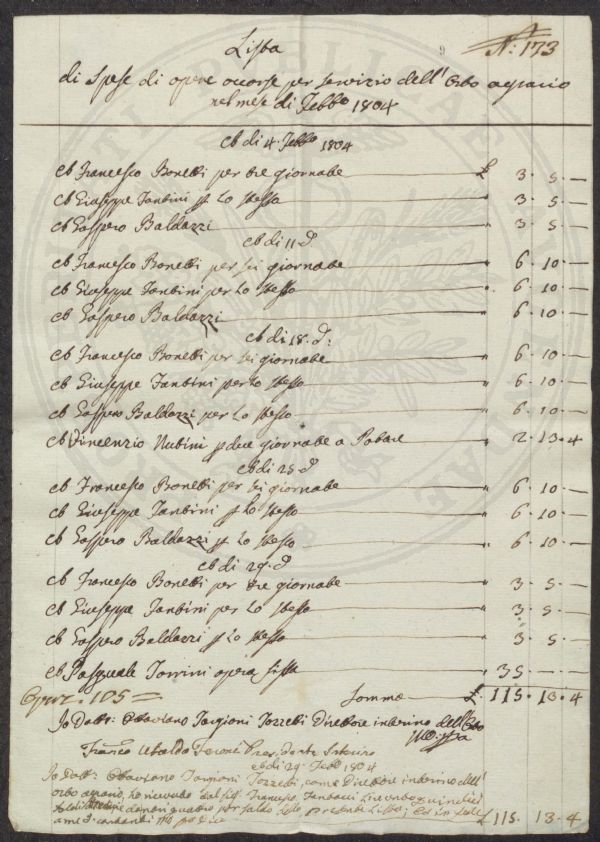 N: 173
Lista
di Spese di opere occorse per servizio dell' Orto agrario
nel mese di Febb.º 1804
A di 4. Febb.º 1804
A Francesco Bonetti per tre giornate £ 3. 5. —
A Giuseppe Tantini p Lo stesso " 3. 5. —
A Gaspero Baldazzi " 3. 5. —
A di 11. d.º
A Francesco Bonetti per sei giornate " 6. 10. —
A Giuseppe Tantini per Lo stesso " 6. 10. —
A Gaspero Baldazzi " 6. 10. —
A di 18. d.º
A Francesco Bonetti per sei giornate " 6. 10. —
A Giuseppe Tantini per Lo stesso " 6. 10. —
A Gaspero Baldazzi per Lo stesso " 6. 10. —
A Vincenzio Nutini p due giornate a Potare " 2. 13. 4
A di 25. d.º
A Francesco Bonetti per sei giornate " 6. 10. —
A Giuseppe Tantini p Lo stesso " 6. 10. —
A Gaspero Baldazzi p Lo stesso " 6. 10. —
A di 29. d.º
A Francesco Bonetti per tre giornate " 3. 5. —
A Giuseppe Tantini per Lo stesso " 3. 5. —
A Gaspero Baldazzi p Lo stesso " 3. 5. —
A Pasquale Torrini opera fissa " 35 — —
Opere. 105 = Somma £. 115. 13. 4
Io Dott: Ottaviano Targioni Tozzetti Direttore interino dell' Orto
Franco Ubaldo Feroni Presidente Interino
A di 29. Febb. 1804
Io Dott: Ottaviano Targioni Tozzetti, come Direttore interino dell'
Orto agrario, ho ricevuto dal Sig. Francesco Lire cento quindici
soldi tredici e danari quattro per saldo della presente Lista; ed in fede
a me d. contanti mo pa £ 115. 13. 4